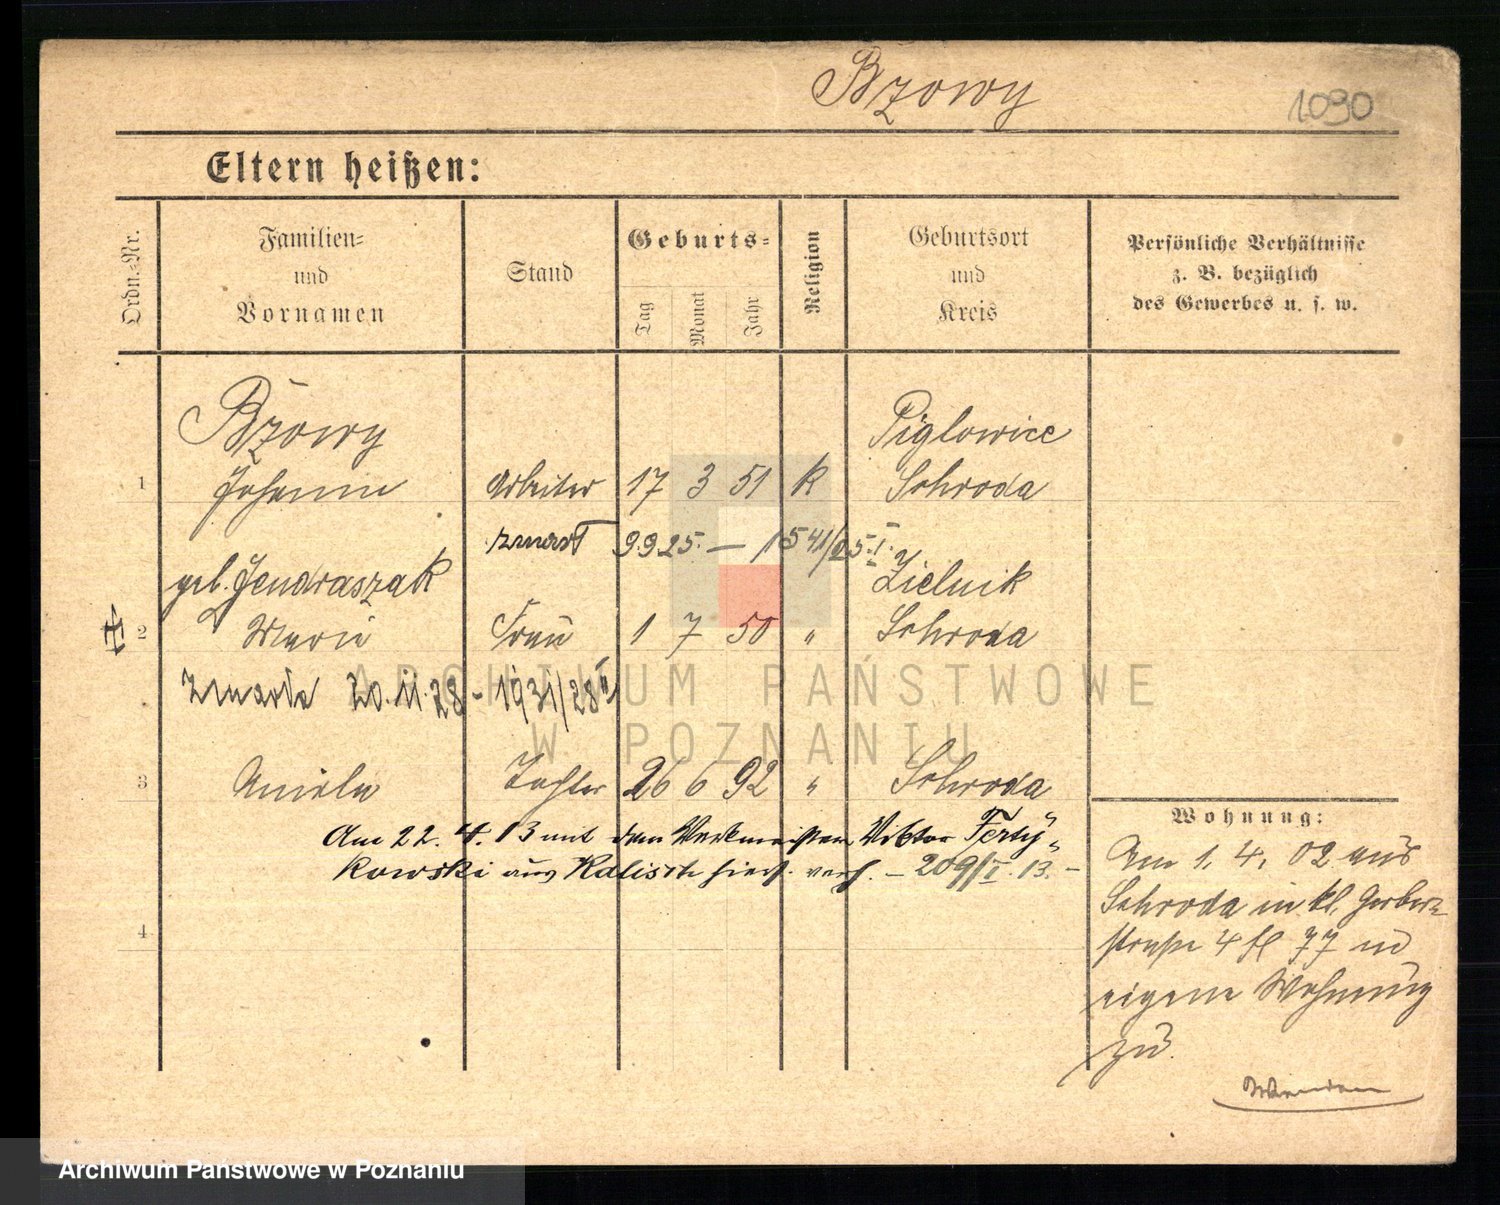 Bzowy
1090
Eltern heißen:
Ordn.-Nr.
Familien-
und
Vornamen
Stand
Geburts-
Tag
Monat
Jahr
Religion
Geburtsort
und
Kreis
Persönliche Verhältnisse
z. B. bezüglich
des Gewerbes u. s. w.
Bzowy Piglowice
1 Johann Arbeiter 17 3 51 K Schroda
zmarł 9 9 25. — 1541/25 I.
geb. Jendraszak Zielnik
2 Marie Frau 1 7 50 " Schroda
zmarła 20.11.28 - 1931/28 II
3 Aniela Tochter 26 6 92 " Schroda
Am 22. 4. 13 mit dem Werkmeister Viktor
kowski aus Kalisch hier verh. — 209/I. 13. —
4
Wohnung:
Am 1. 4. 02 aus
Schroda in kl. Gerber-
straße 4 77 in
eigene Wohnung
zu.
ARCHIWUM PAŃSTWOWE
W POZNANIU
Archiwum Państwowe w Poznaniu